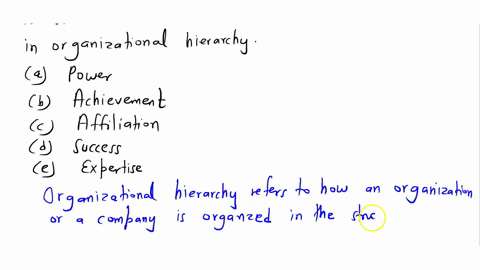 in organizational hierarchy.
(a) Power
(b) Achievement
(c) Affiliation
(d) Success
(e) Expertise
Organizational hierarchy refers to how an organization
or a company is organzed in the struc